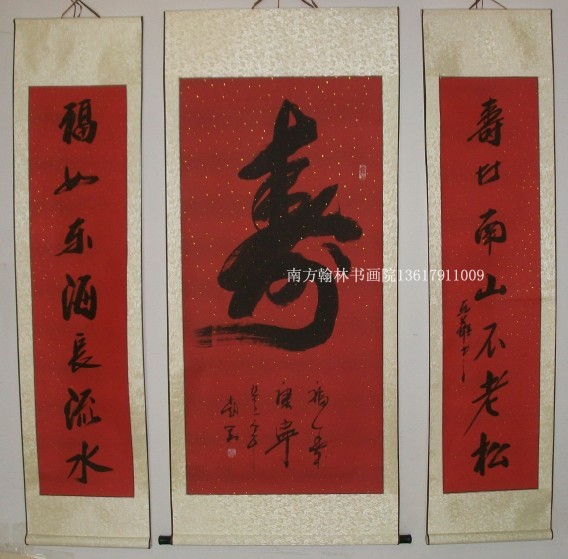 福如东海長流水
寿
南方翰林书画院13617911009
寿比南山不老松